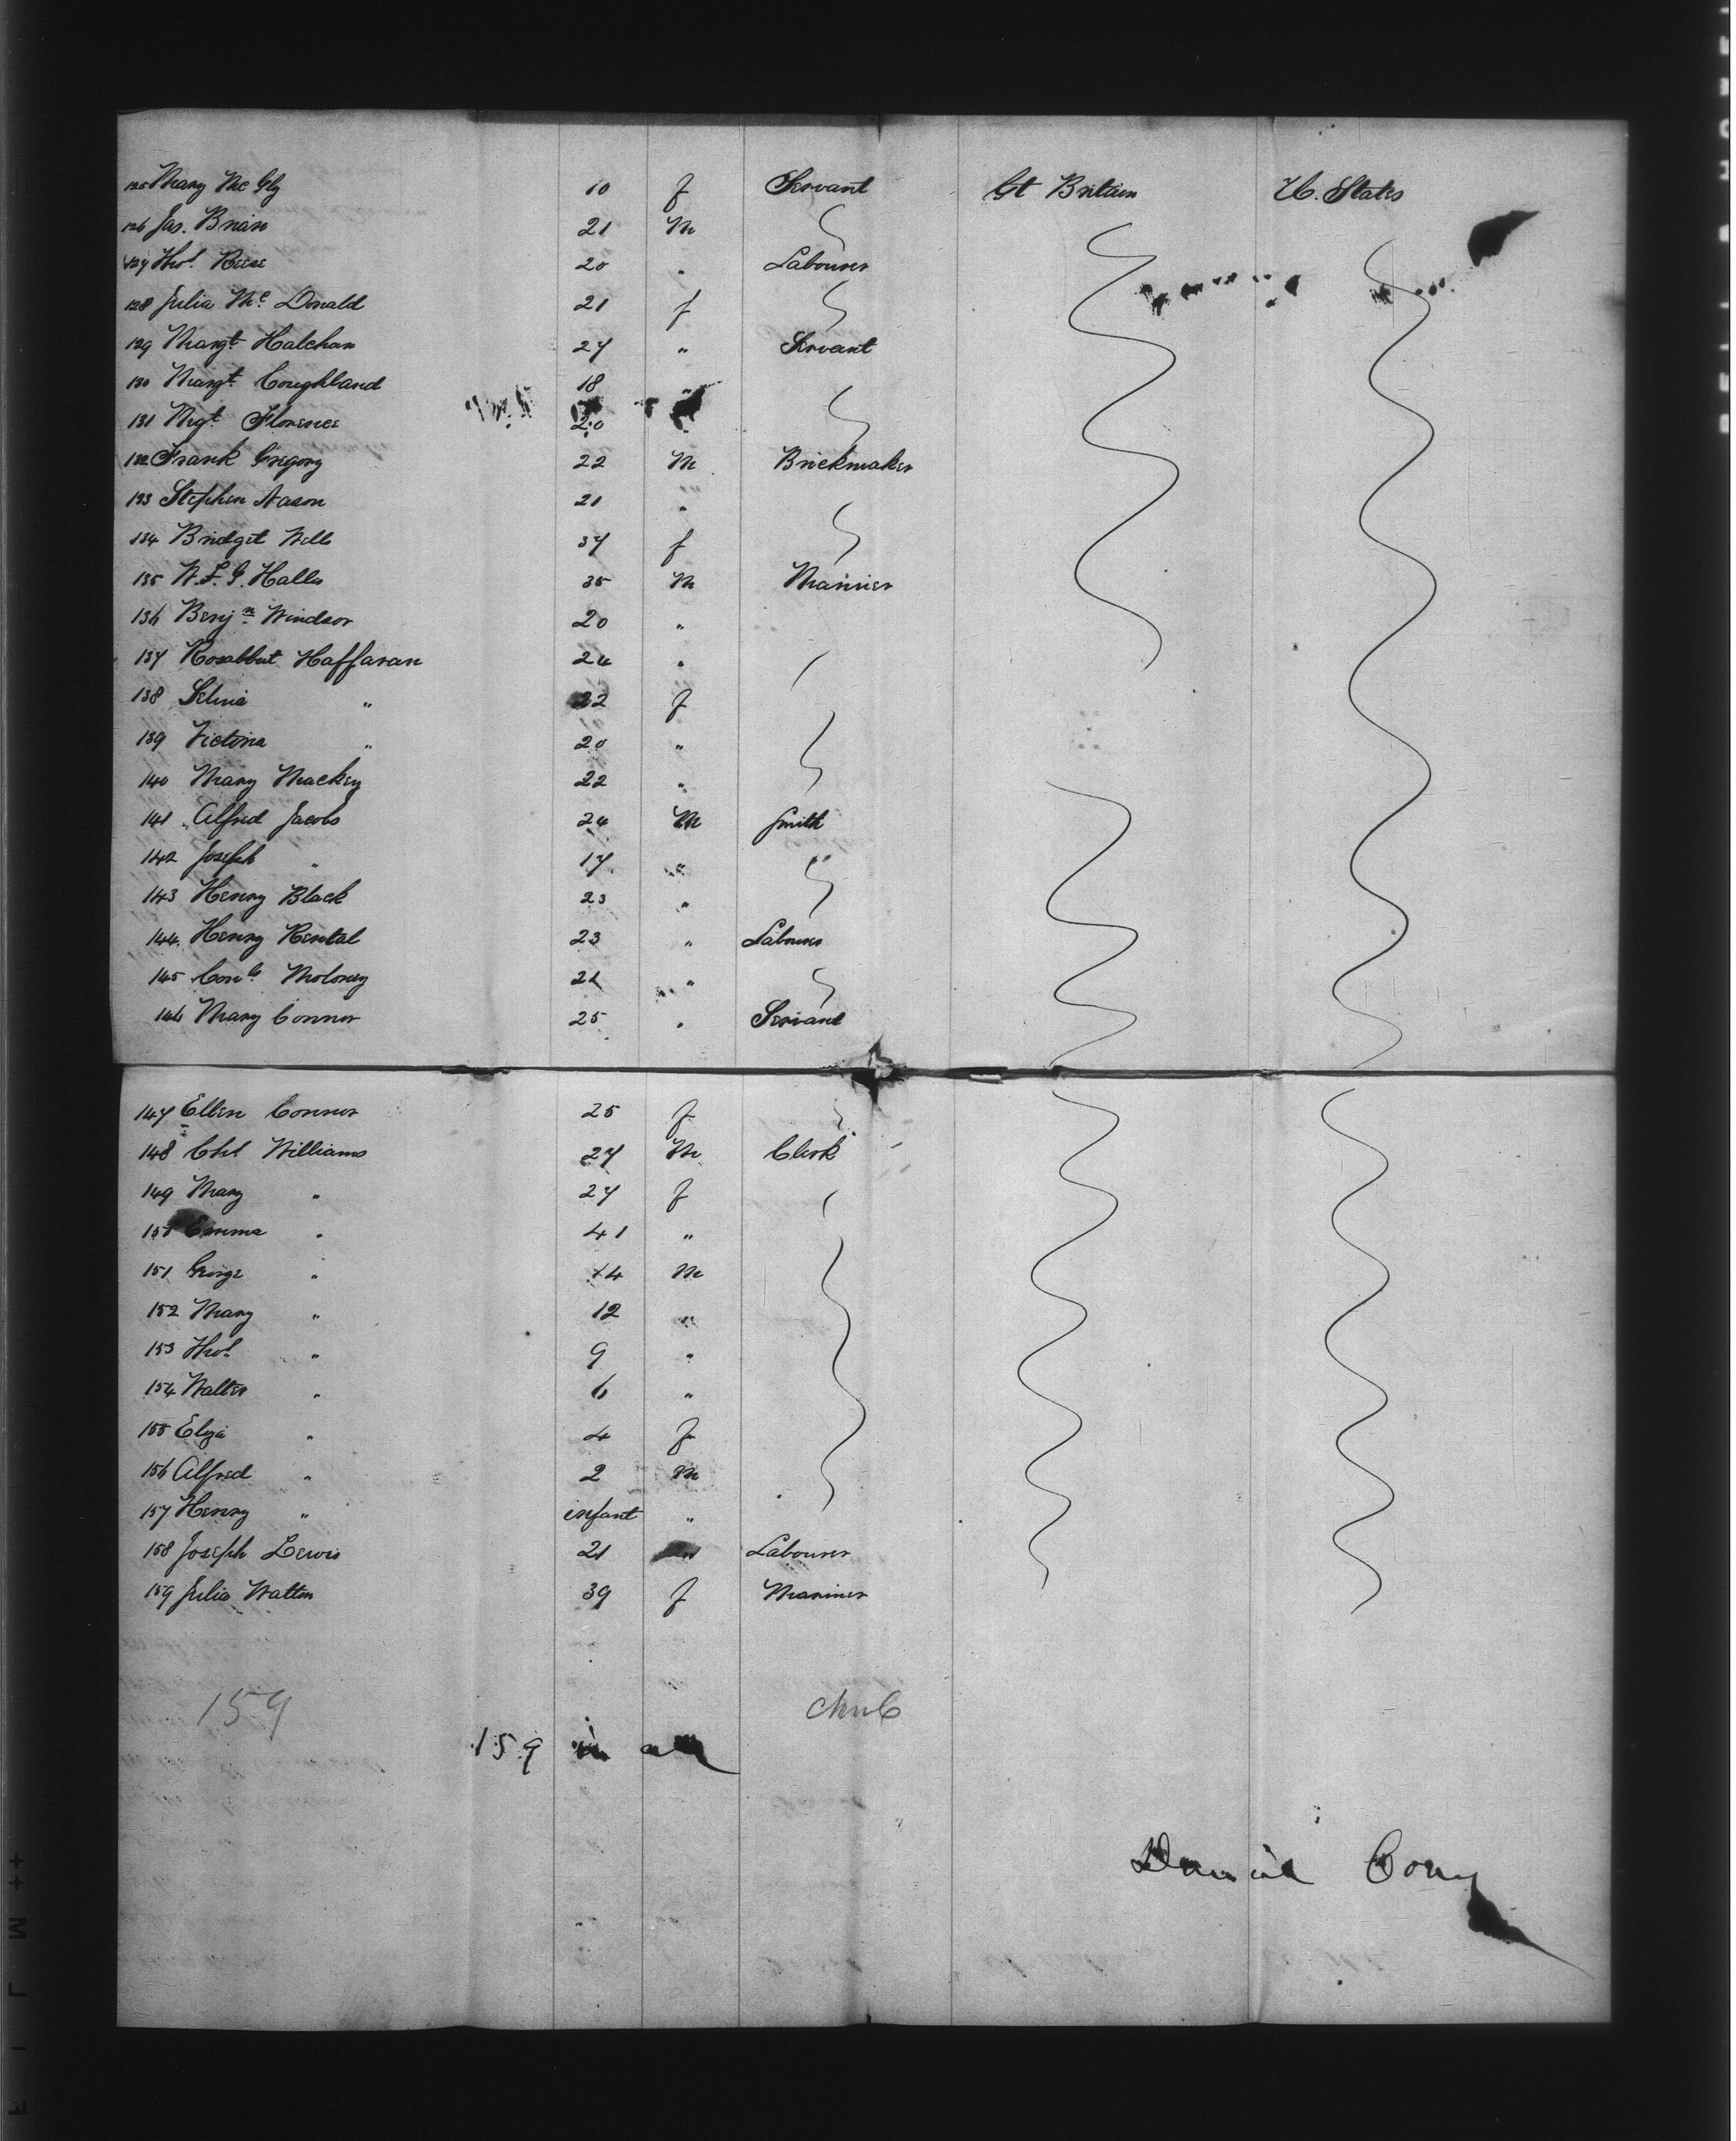 125 Mary Mc Gly 10 f Servant Gt Britain U. States
126 Jas. Brian 21 M
127 Thos. Reese 20 " Labourer
128 Julia Mc Donald 21 f
129 Margt Halchan 27 " Servant
130 Margt Coughland 18 "
131 Mgt Florence 20 "
132 Frank Gregory 22 M Brickmaker
133 Stephen Nason 21 "
134 Bridget Wells 37 f
135 W. F. G. Halls 35 M Mariner
136 Benjn Windsor 20 "
137 Rosabbut Haffaran 24 "
138 Selina " 22 f
139 Victoria " 20 "
140 Mary Mackey 22 "
141 Alfred Jacobs 24 M Smith
142 Joseph " 17 "
143 Henry Black 23 "
144 Henry Rental 23 " Labourer
145 Cons Moloney 21 "
146 Mary Connor 25 " Servant
147 Ellen Connor 25 f
148 Chs Williams 27 M Clerk
149 Mary " 27 f
150 Emma " 41 "
151 George " 14 M
152 Mary " 12 "
153 Thos " 9 "
154 Walter " 6 "
155 Eliza " 4 f
156 Alfred " 2 M
157 Henry " infant "
158 Joseph Lewis 21 Labourer
159 Julia Walton 39 f Mariner
159
159 in all
Daniel Cony